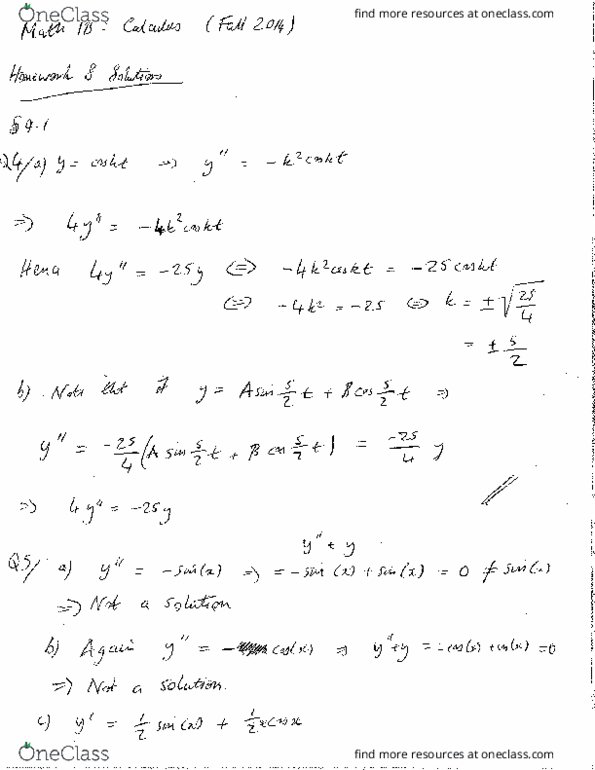 OneClass
find more resources at oneclass.com
Math 1B: Calculus (Fall 2014)
Homework 8 Solutions
§9.1
24/a) y = coskt => y" = -k²coskt
=> 4y" = -4k²coskt
Hence 4y" = -25y <=> -4k²coskt = -25coskt
<=> -4k² = -25 <=> k = ±√(25/4)
= ±5/2
b) Note that if y = Asin 5/2 t + Bcos 5/2 t =>
y" = -25/4 (A sin 5/2 t + B cos 5/2 t) = -25/4 y
=> 4y" = -25y
y" + y
Q5/ a) y" = -sin(x) => = -sin(x) + sin(x) = 0 ≠ sin(x)
=> Not a solution
b) Again y" = -cos(x) => y"+y = -cos(x)+cos(x) = 0
=> Not a solution.
c) y' = 1/2 sin(x) + 1/2 xcosx
OneClass
find more resources at oneclass.com